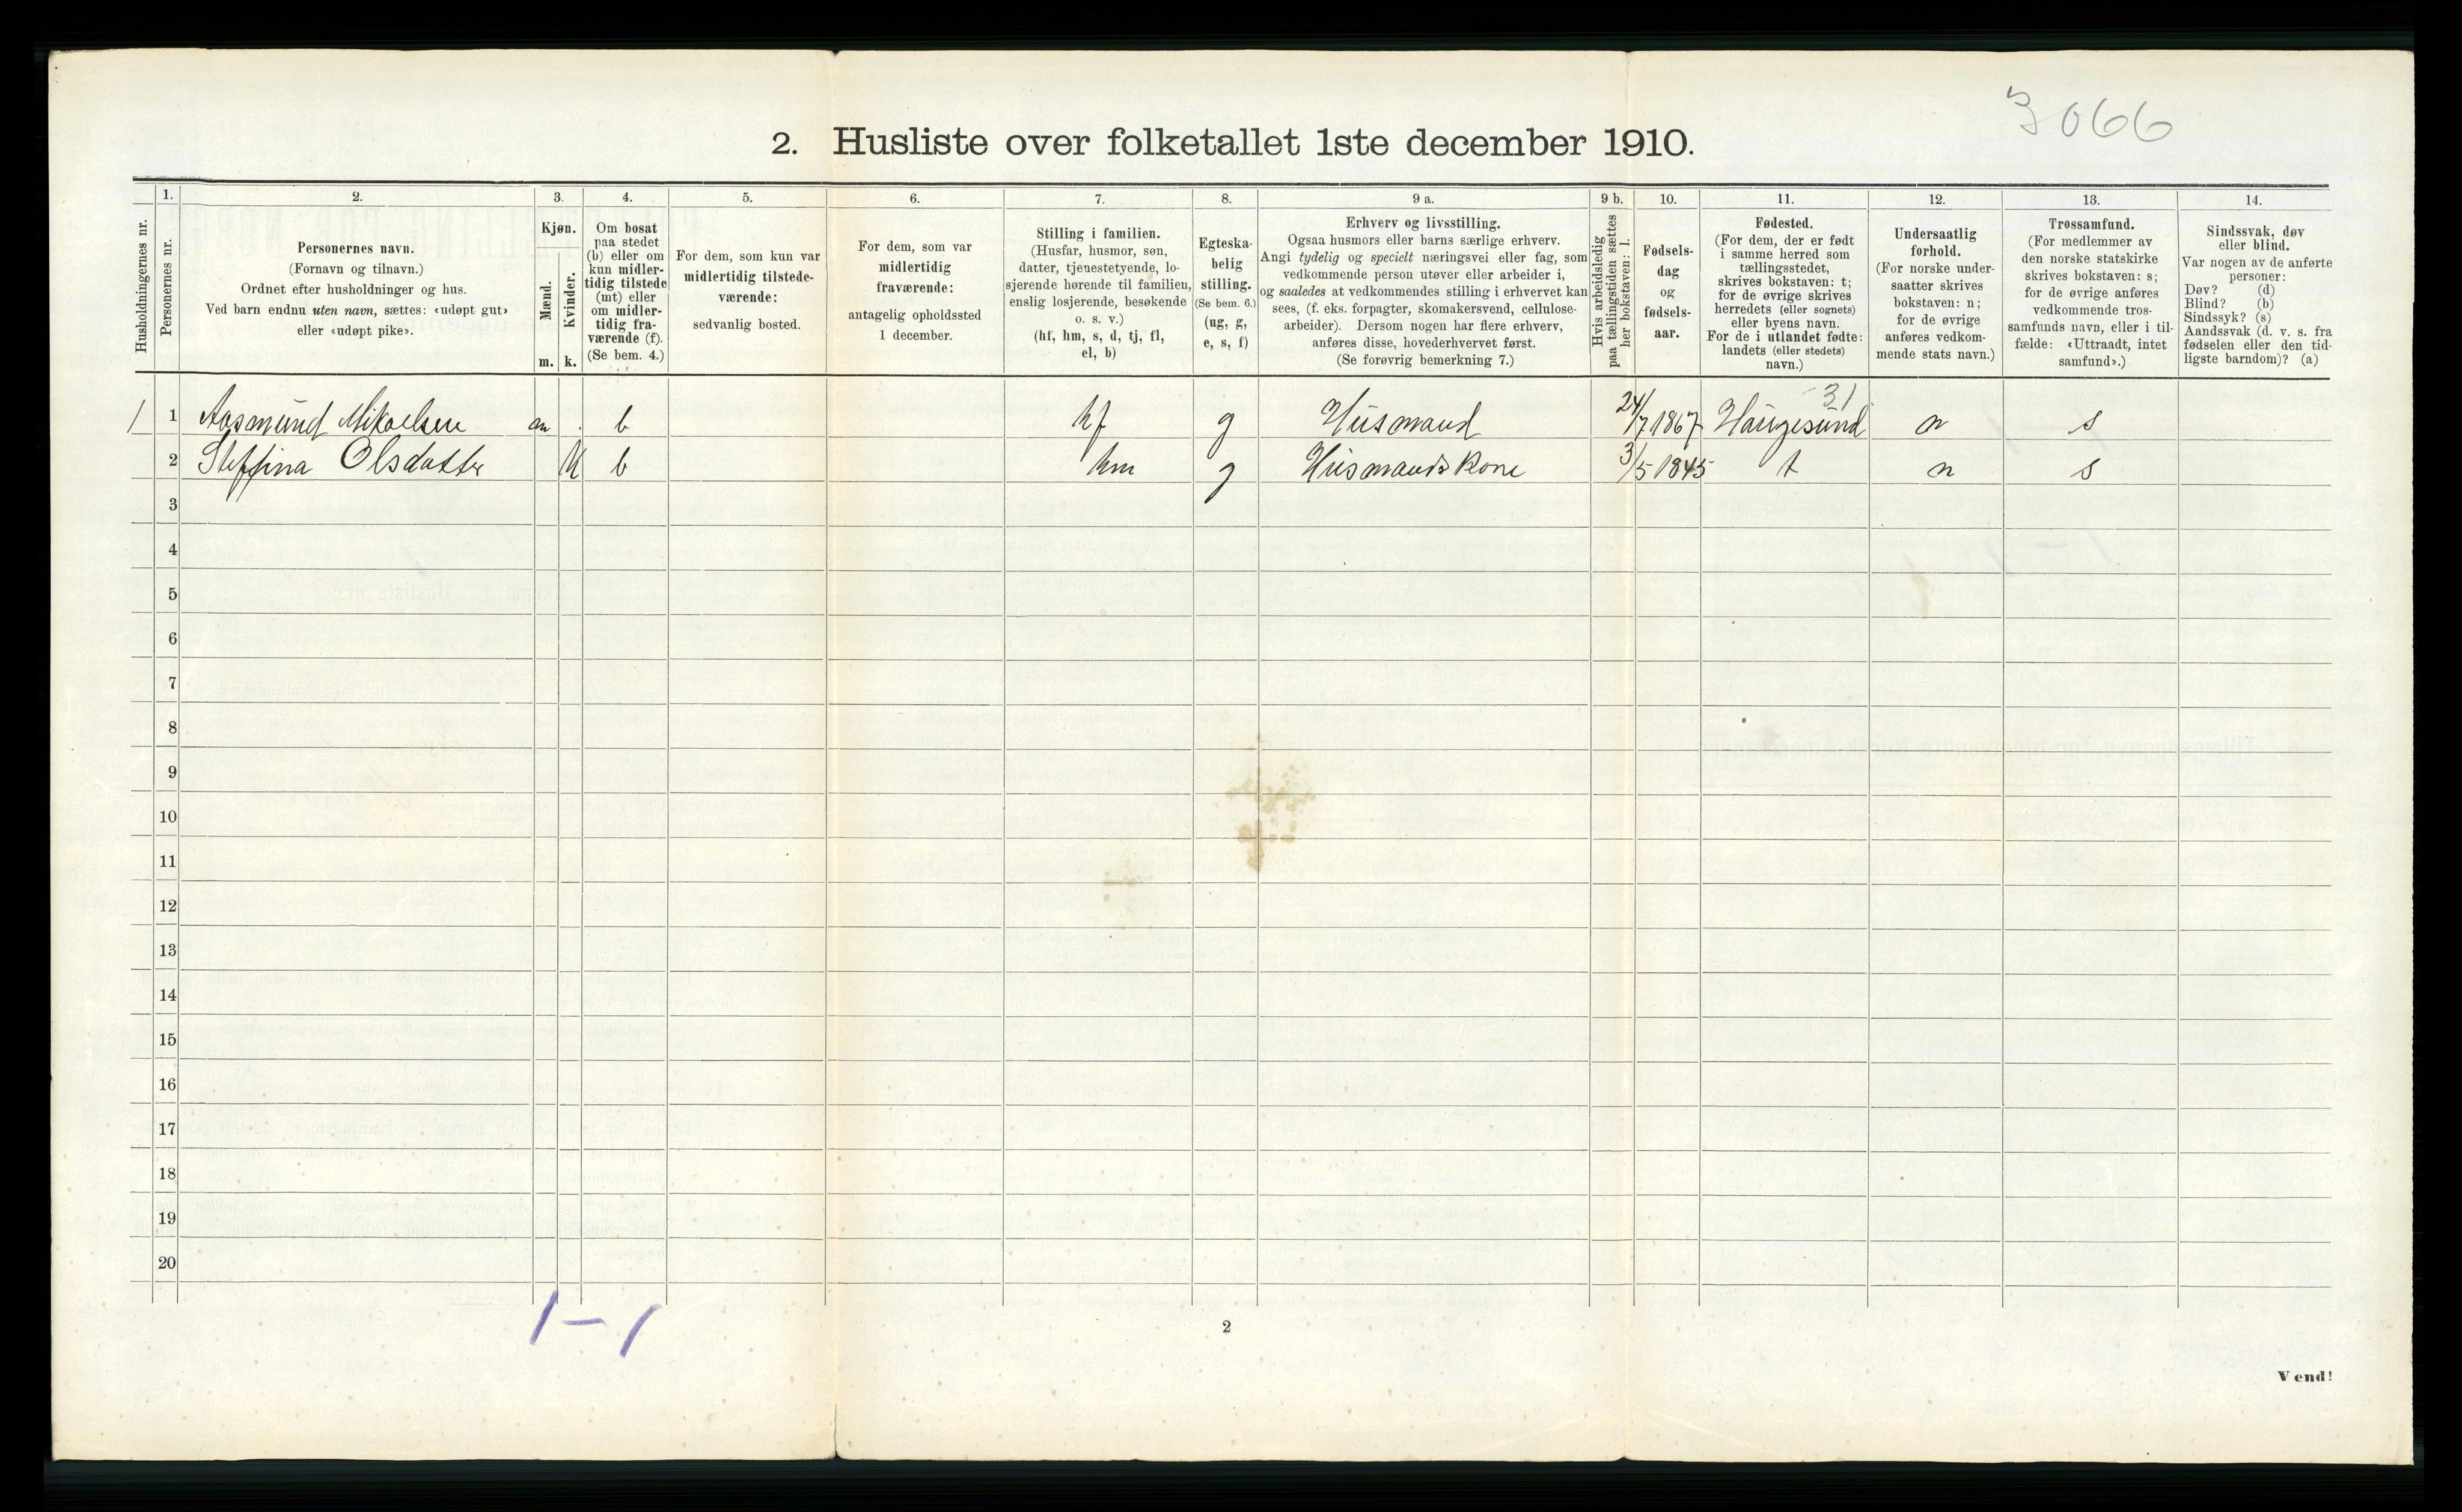 3066
2. Husliste over folketallet 1ste december 1910.
Husholdningernes nr.
1.
Personernes nr.
2.
Personernes navn.
(Fornavn og tilnavn.)
Ordnet efter husholdninger og hus.
Ved barn endnu uten navn, sættes: «udøpt gut»
eller «udøpt pike».
3.
Kjøn.
Mænd.
Kvinder.
m. k.
4.
Om bosat
paa stedet
(b) eller om
kun midler-
tidig tilstede
(mt) eller
om midler-
tidig fra-
værende (f).
(Se bem. 4.)
5.
For dem, som kun var
midlertidig tilstede-
værende:
sedvanlig bosted.
6.
For dem, som var
midlertidig
fraværende:
antagelig opholdssted
1 december.
7.
Stilling i familien.
(Husfar, husmor, søn,
datter, tjenestetyende, lo-
sjerende hørende til familien,
enslig losjerende, besøkende
o. s. v.)
(hf, hm, s, d, tj, fl,
el, b)
8.
Egteska-
belig
stilling.
(Se bem. 6.)
(ug, g,
e, s, f)
9 a.
Erhverv og livsstilling.
Ogsaa husmors eller barns særlige erhverv.
Angi tydelig og specielt næringsvei eller fag, som
vedkommende person utøver eller arbeider i,
og saaledes at vedkommendes stilling i erhvervet kan
sees, (f. eks. forpagter, skomakersvend, cellulose-
arbeider). Dersom nogen har flere erhverv,
anføres disse, hovederhvervet først.
(Se forøvrig bemerkning 7.)
9 b.
Hvis arbeidsledig
paa tællingstiden sættes
her bokstaven: l.
10.
Fødsels-
dag
og
fødsels-
aar.
11.
Fødested.
(For dem, der er født
i samme herred som
tællingsstedet,
skrives bokstaven: t;
for de øvrige skrives
herredets (eller sognets)
eller byens navn.
For de i utlandet fødte:
landets (eller stedets)
navn.)
12.
Undersaatlig
forhold.
(For norske under-
saatter skrives
bokstaven: n;
for de øvrige
anføres vedkom-
mende stats navn.)
13.
Trossamfund.
(For medlemmer av
den norske statskirke
skrives bokstaven: s;
for de øvrige anføres
vedkommende tros-
samfunds navn, eller i til-
fælde: «Uttraadt, intet
samfund».)
14.
Sindssvak, døv
eller blind.
Var nogen av de anførte
personer:
Døv? (d)
Blind? (b)
Sindssyk? (s)
Aandssvak (d. v. s. fra
fødselen eller den tid-
ligste barndom)? (a)
31
1 1 Aasmund Mikaelsen m b hf g Husmand 24/7 1867 Haugesund n s
2 Steffina Olsdatter k b hm g Husmands Kone 3/5 1845 t n s
3
4
5
6
7
8
9
10
11
12
13
14
15
16
17
18
19
20
1 – 1
2
Vend!